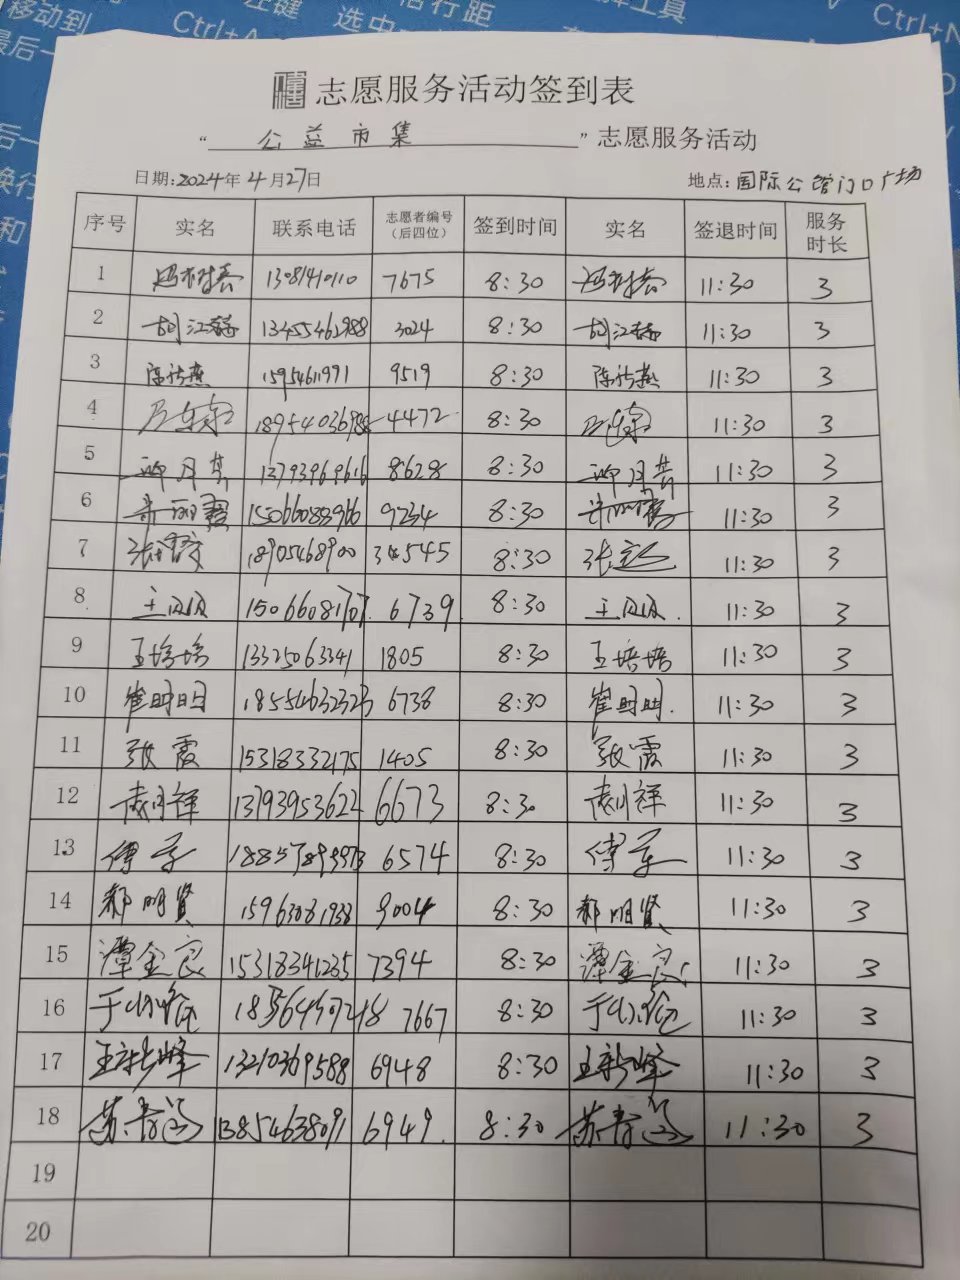 移动到
最后一
左键
Ctrl+A
选中
行距
工具
Ctrl+N
志愿服务活动签到表
“公益市集”志愿服务活动
日期:2024年4月27日 地点:国际公馆门口广场
序号 实名 联系电话 志愿者编号（后四位） 签到时间 实名 签退时间 服务时长
1 7675 8:30 11:30 3
2 胡江 13455462988 3024 8:30 胡江 11:30 3
3 陈 15954611991 9519 8:30 陈 11:30 3
4 18954036988 4472 8:30 11:30 3
5 13793969616 8628 8:30 11:30 3
6 15066088966 9234 8:30 11:30 3
7 张 18905468900 8:30 张 11:30 3
8 王 15066081707 6739 8:30 王 11:30 3
9 王培培 13325063341 1805 8:30 王培培 11:30 3
10 崔明明 18554632323 6738 8:30 崔明明 11:30 3
11 张霞 15318332175 1405 8:30 张霞 11:30 3
12 袁月祥 13793953622 6673 8:30 袁月祥 11:30 3
13 傅 6574 8:30 傅 11:30 3
14 郝明贤 15963081938 9004 8:30 郝明贤 11:30 3
15 谭金良 15318341235 7394 8:30 谭金良 11:30 3
16 于 7667 8:30 于 11:30 3
17 王 峰 13210369588 6948 8:30 王 峰 11:30 3
18 苏春 13854638091 6949 8:30 苏春 11:30 3
19
20